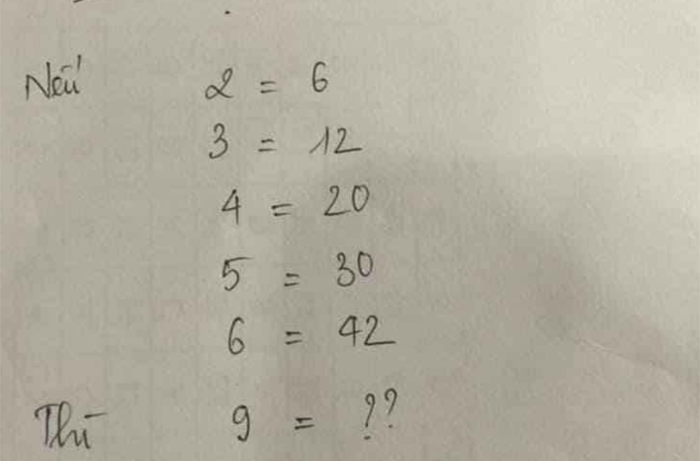 Nếu 2 = 6
3 = 12
4 = 20
5 = 30
6 = 42
Thì 9 = ??